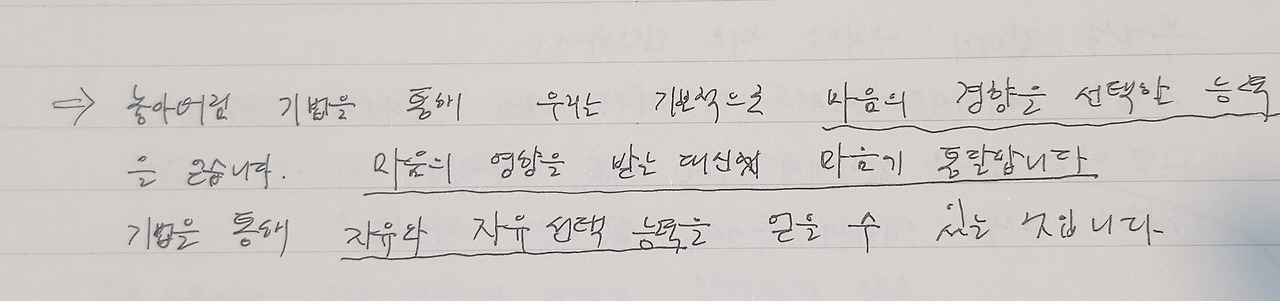 ⇒ 놓아버림 기법을 통해 우리는 기본적으로 마음의 경향을 선택할 능력
을 얻습니다. 마음의 영향을 받는 대신 마음이 통달합니다
기법을 통해 자유와 자유 선택 능력을 얻을 수 있는 것입니다.